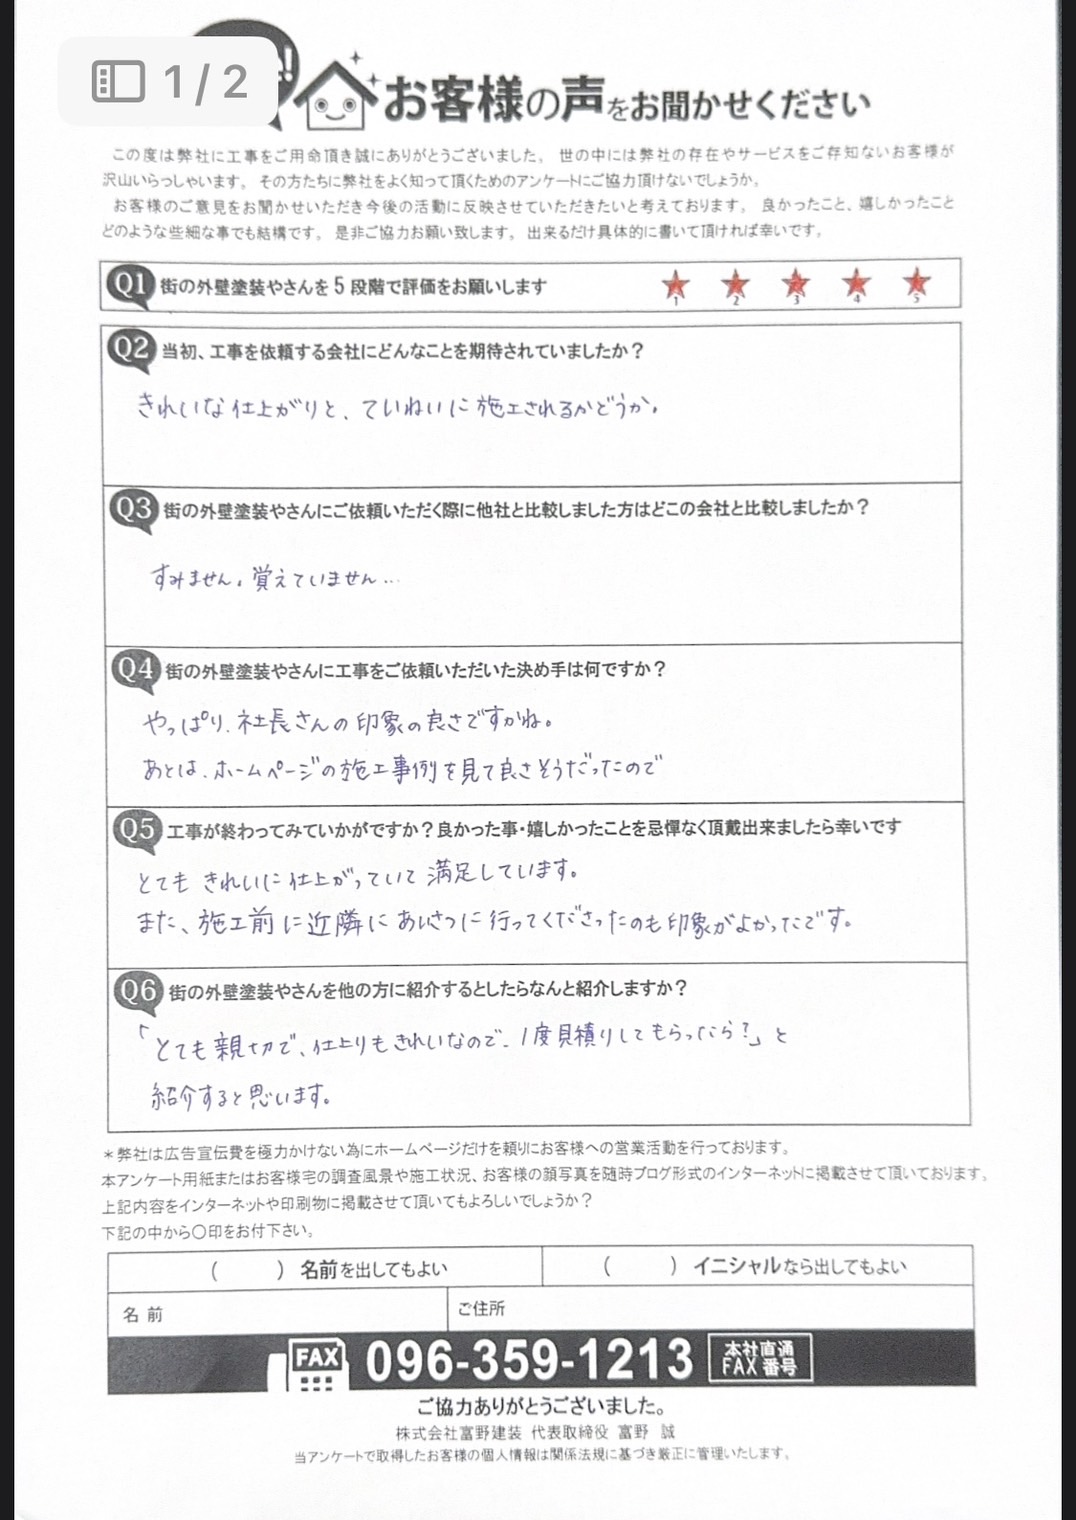 1 / 2
!
お客様の声をお聞かせください
この度は弊社に工事をご用命頂き誠にありがとうございました。 世の中には弊社の存在やサービスをご存知ないお客様が
沢山いらっしゃいます。 その方たちに弊社をよく知って頂くためのアンケートにご協力頂けないでしょうか。
お客様のご意見をお聞かせいただき今後の活動に反映させていただきたいと考えております。 良かったこと、嬉しかったこと
どのような些細な事でも結構です。 是非ご協力お願い致します。 出来るだけ具体的に書いて頂ければ幸いです。
Q1 街の外壁塗装やさんを 5 段階で評価をお願いします ★1 ★2 ★3 ★4 ★5
Q2 当初、工事を依頼する会社にどんなことを期待されていましたか？
きれいな仕上がりと、ていねいに施工されるかどうか。
Q3 街の外壁塗装やさんにご依頼いただく際に他社と比較しました方はどこの会社と比較しましたか？
すみません。覚えていません…
Q4 街の外壁塗装やさんに工事をご依頼いただいた決め手は何ですか？
やっぱり、社長さんの印象の良さですかね。
あとは、ホームページの施工事例を見て良さそうだったので
Q5 工事が終わってみていかがですか？良かった事・嬉しかったことを忌憚なく頂戴出来ましたら幸いです
とても きれいに仕上がっていて 満足しています。
また、施工前に近隣にあいさつに行ってくださったのも印象がよかったです。
Q6 街の外壁塗装やさんを他の方に紹介するとしたらなんと紹介しますか？
「とても親切で、仕上りもきれいなので、1度見積りしてもらったら？」と
紹介すると思います。
＊弊社は広告宣伝費を極力かけない為にホームページだけを頼りにお客様への営業活動を行っております。
本アンケート用紙またはお客様宅の調査風景や施工状況、お客様の顔写真を随時ブログ形式のインターネットに掲載させて頂いております。
上記内容をインターネットや印刷物に掲載させて頂いてもよろしいでしょうか？
下記の中から〇印をお付下さい。
（　　　）名前を出してもよい （　　　）イニシャルなら出してもよい
名 前 ご住所
FAX 096-359-1213 本社直通 FAX 番号
ご協力ありがとうございました。
株式会社富野建装 代表取締役 富野 誠
当アンケートで取得したお客様の個人情報は関係法規に基づき厳正に管理いたします。